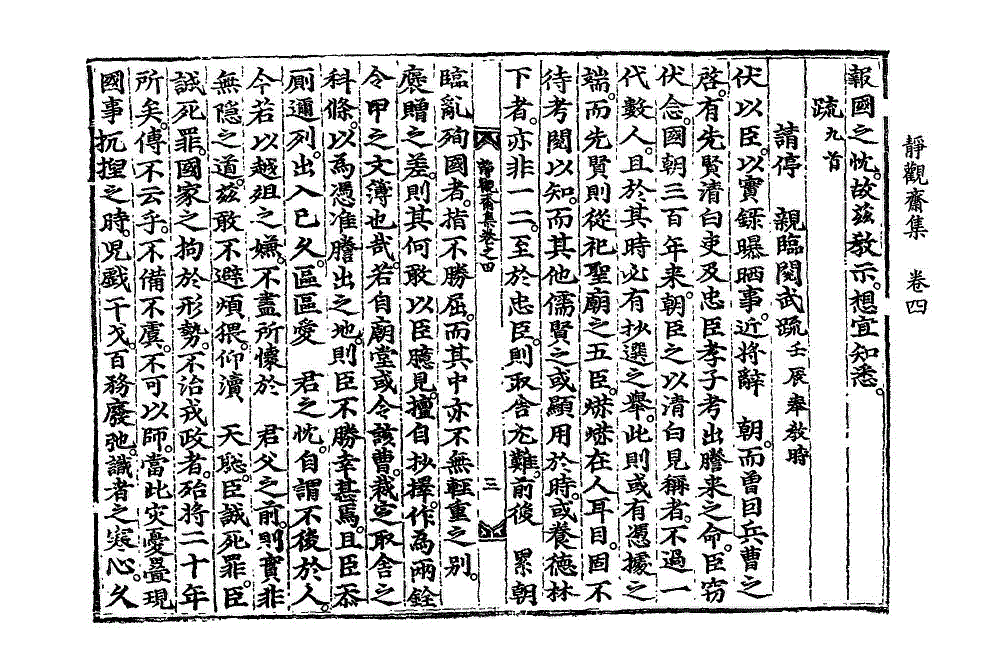 靜觀齋集　卷四
報國之忱。故玆敎示。想宜知悉。
疏九首
請停　親臨閱武疏壬辰奉敎時
伏以臣。以實錄曝晒事。近將辭　朝。而曾因兵曹之
啓。有先賢淸白吏及忠臣孝子考出謄來之命。臣竊
伏念。國朝三百年來。朝臣之以淸白見稱者。不過一
代數人。且於其時必有抄選之擧。此則或有憑據之
端。而先賢則從祀聖廟之五臣。燦燦在人耳目。固不
待考閱以知。而其他儒賢之或顯用於時。或養德林
下者。亦非一二。至於忠臣。則取舍尤難。前後　累朝
靜觀齋集卷之四
三
臨亂殉國者。指不勝屈。而其中亦不無輕重之別。
褒贈之差。則其何敢以臣臆見。擅自抄擇。作爲兩銓
令甲之文簿也哉。若自廟堂或令該曹。裁定取舍之
科條。以爲憑准謄出之地。則臣不勝幸甚焉。且臣忝
廁邇列。出入已久。區區愛　君之忱。自謂不後於人。
今若以越俎之嫌。不盡所懷於　君父之前。則實非
無隱之道。玆敢不避煩猥。仰瀆　天聰。臣誠死罪。臣
誠死罪。國家之拘於形勢。不治戎政者。殆將二十年
所矣。傳不云乎。不備不虞。不可以師。當此灾憂疊現
國事扤捏之時。兒戱干戈。百務廢弛。識者之寒心。久